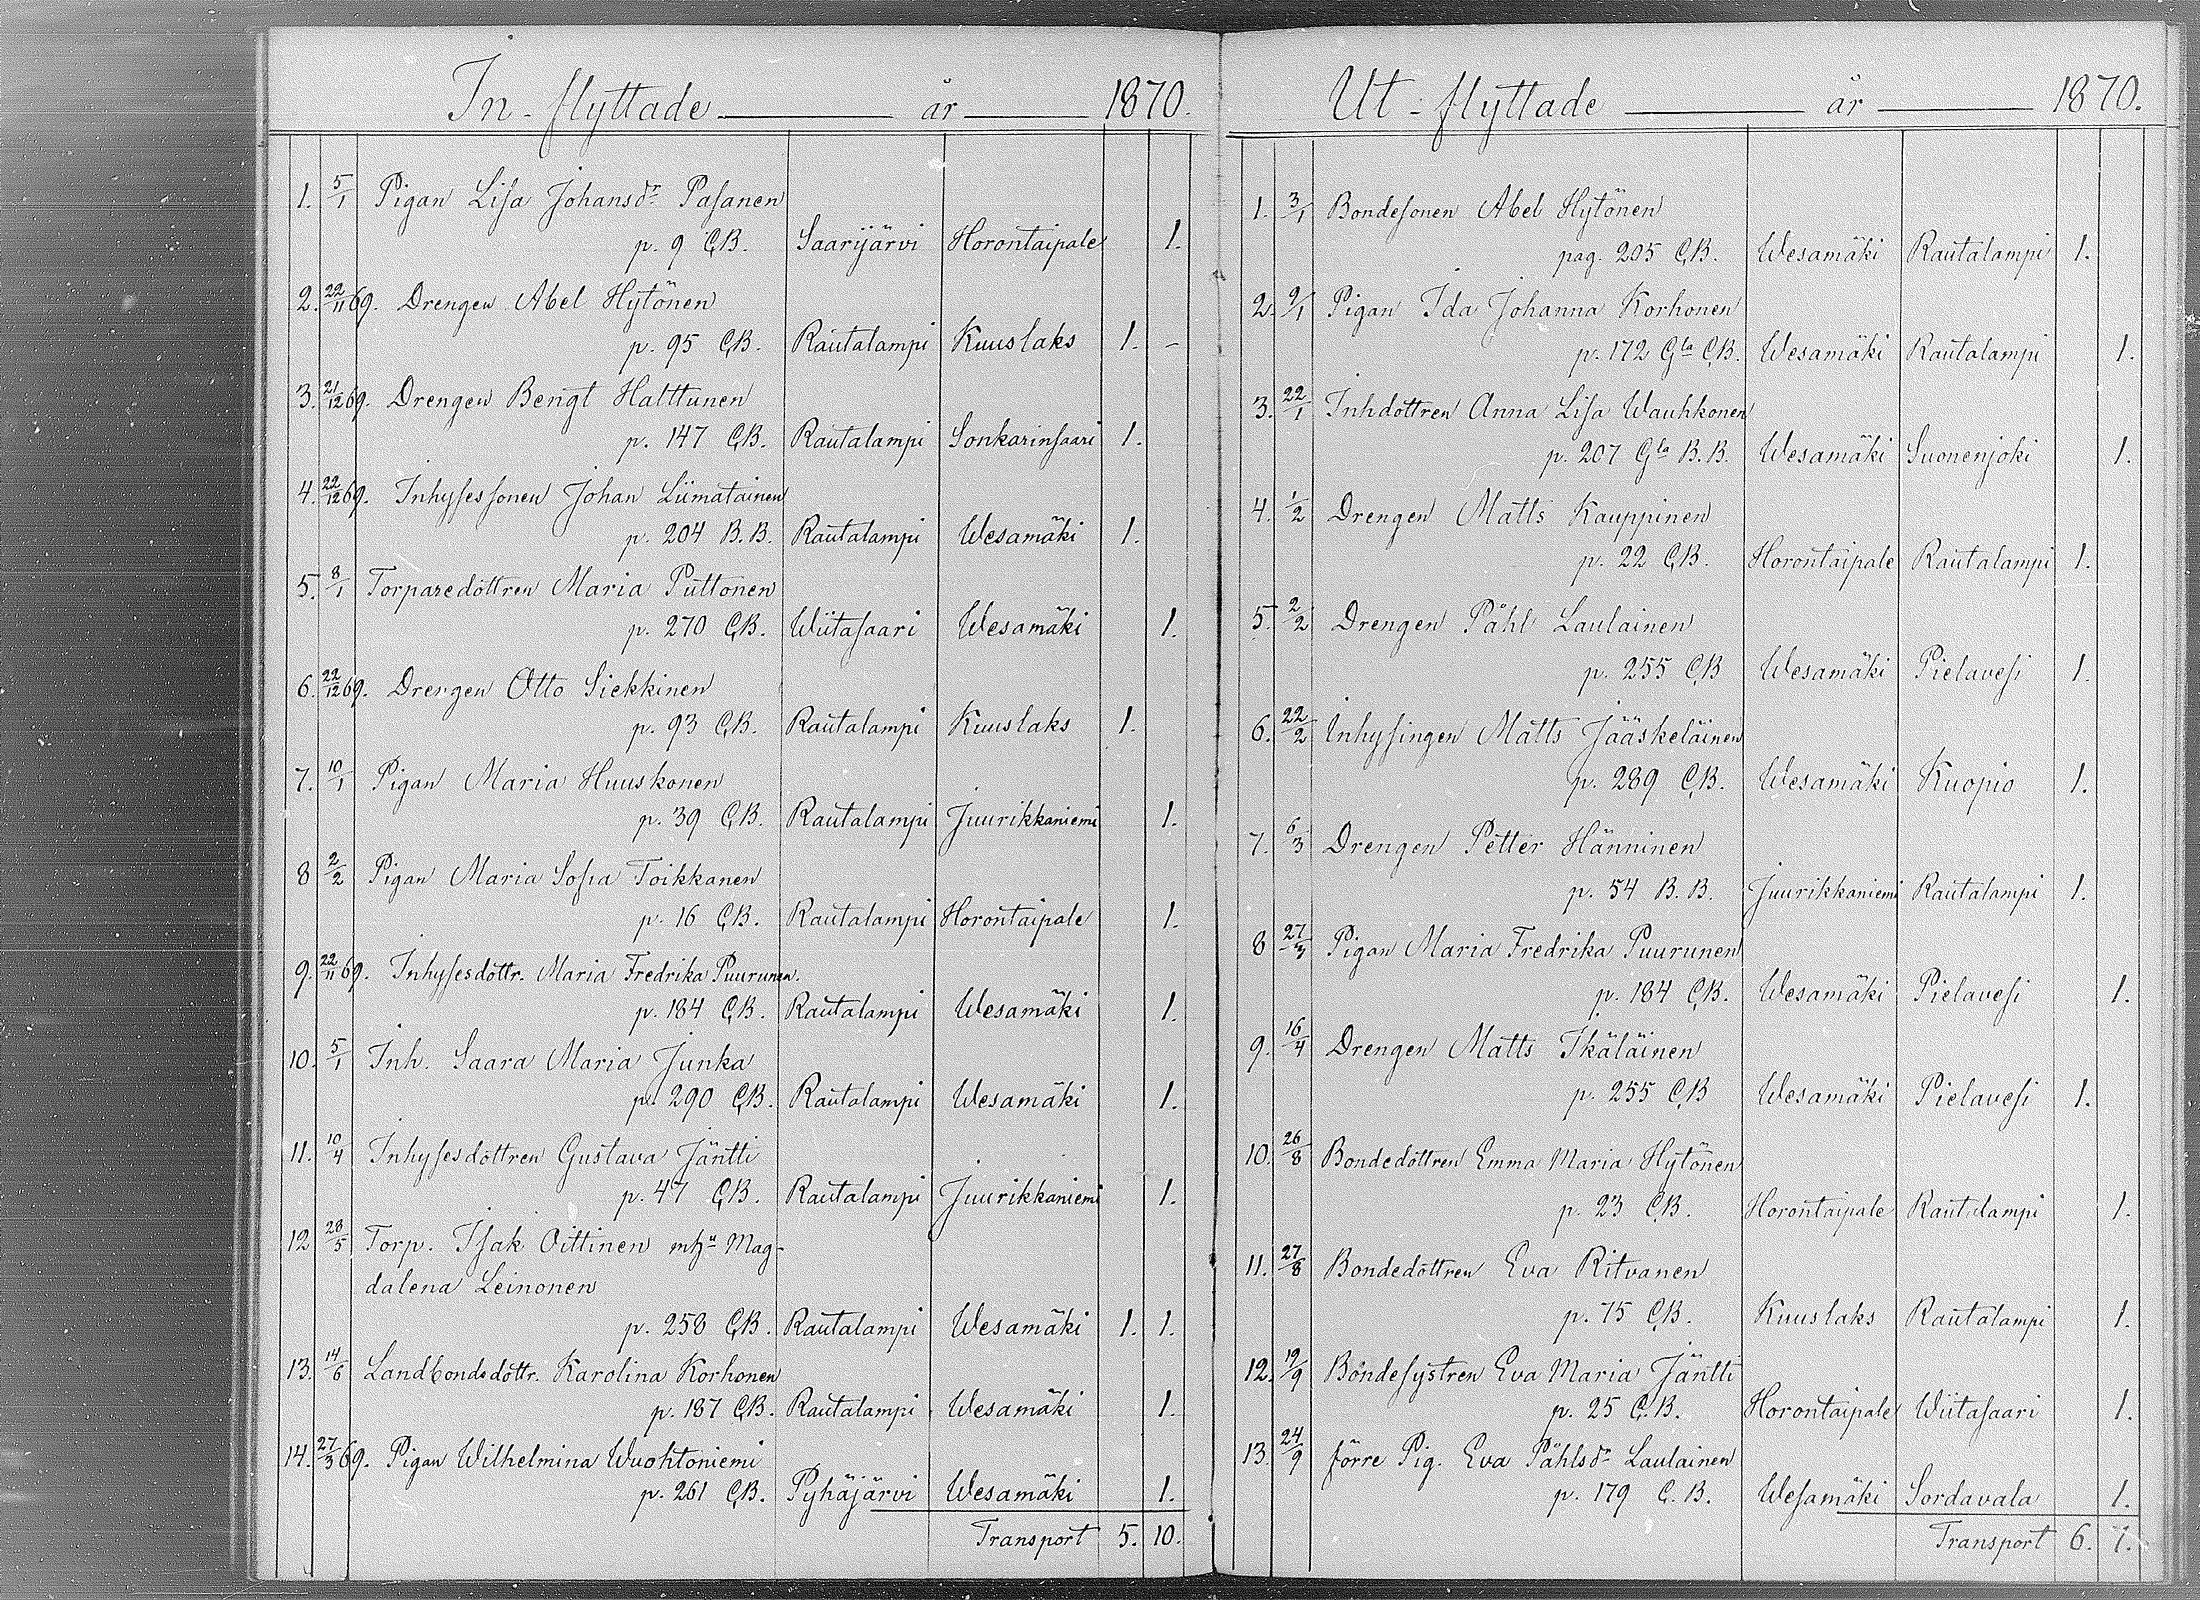 In-flyttade år 1870.
1. 5/1 Pigan Lisa Johansdr Pasanen
p. 9 C,B. Saarijärvi Horontaipale 1.
2. 22/11 69. Drengen Abel Hytönen
p. 95 C,B. Rautalampi Kuuslaks 1. -
3. 21/12 69. Drengen Bengt Halttunen
p. 147 C,B. Rautalampi Sonkarinsaari 1.
4. 22/12 69. Inhysessonen Johan Liimatainen
p. 204 B.B. Rautalampi Wesamäki 1.
5. 8/1 Torparedottren Maria Puttonen
p. 270 C,B. Wiitasaari Wesamäki 1.
6. 22/12 69. Drengen Otto Siekkinen
p. 93 C,B. Rautalampi Kuuslaks 1.
7. 10/1 Pigan Maria Huuskonen
p. 39 C,B. Rautalampi Juurikkaniemi 1.
8 2/2 Pigan Maria Sofia Toikkanen
p. 16 C,B. Rautalampi Horontaipale 1.
9. 22/11 69. Inhysesdottr. Maria Fredrika Puurunen.
p. 184 C,B. Rautalampi Wesamäki 1.
10. 5/1 Inh. Saara Maria Junka
p. 290 C,B. Rautalampi Wesamäki 1.
11. 10/4 Inhysesdottren Gustava Jäntti
p. 47 C,B. Rautalampi Juurikkaniemi 1.
12 28/5 Torp. Isak Oittinen mhu Mag-
dalena Leinonen
p. 258 C,B. Rautalampi Wesamäki 1. 1.
13. 14/6 Landbondedottr. Karolina Korhonen
p. 187 C,B. Rautalampi Wesamäki 1.
14. 27/3 69. Pigan Wilhelmina Wuohtoniemi
p. 261 C,B. Pyhäjärvi Wesamäki 1.
Transport 5. 10.
Ut-flyttade år 1870.
1. 3/1 Bondesonen Abel Hytönen
pag. 205 C,B. Wesamäki Rautalampi 1.
2. 9/1 Pigan Ida Johanna Korhonen
p. 172 Gla C,B. Wesamäki Rautalampi 1.
3. 22/1 Inhdottren Anna Lisa Wauhkonen
p. 207 Gla B.B. Wesamäki Suonenjoki 1.
4. 1/2 Drengen Matts Kauppinen
p. 22 C,B. Horontaipale Rautalampi 1.
5. 2/2 Drengen Påhl Laulainen
p. 255 C,B Wesamäki Pielavesi 1.
6. 22/2 Inhysingen Matts Jääskeläinen
p. 289 C,B. Wesamäki Kuopio 1.
7. 6/3 Drengen Petter Hänninen
p. 54 B.B. Juurikkaniemi Rautalampi 1.
8 27/3 Pigan Maria Fredrika Puurunen
p. 184 C,B. Wesamäki Pielavesi 1.
9. 16/4 Drengen Matts Ikäläinen
p. 255 C,B Wesamäki Pielavesi 1.
10. 26/8 Bondedottren Emma Maria Hytönen
p. 23 C,B. Horontaipale Rautalampi 1.
11. 27/8 Bondedottren Eva Ritvanen
p. 75 C,B. Kuuslaks Rautalampi 1.
12. 19/9 Bondesystren Eva Maria Jäntti
p. 25 C.B. Horontaipale Wiitasaari 1.
13. 24/9 förre Pig. Eva Påhlsdr Laulainen
p. 179 C.B. Wesamäki Sordavala 1.
Transport 6. 7.